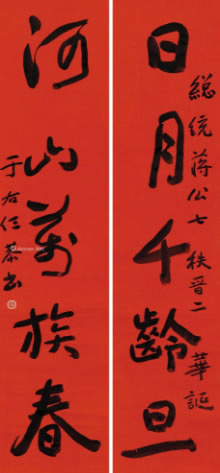 總統蔣公七秩晉二華誕
日月千齡旦
河山萬族春
于右任恭書